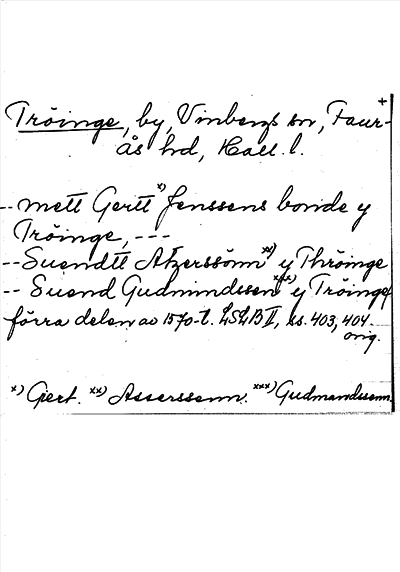 +
Tröinge, by, Vinbergs sn, Faur-
ås hd, Hall. l.
-- mett Gertt x) Jenssens bonde y
Tröinge, ---
-- Suendtt Atzerssönn xx) y Thröinge
-- Suend Gudmindssen xxx) y Tröinge
förra delen av 1570-t. LSLB II, ss. 403, 404.
orig.
x) Giert. xx) Asserssenn. xxx) Gudmandssenn.